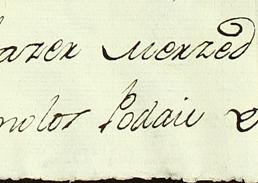 azer Merzed
nolos Podaie